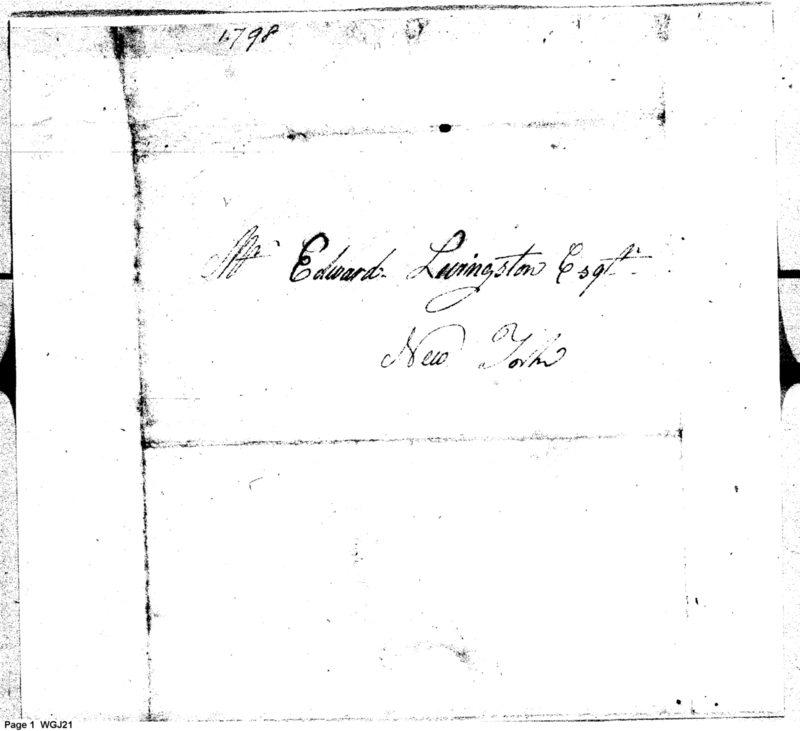 1798
Mr Edward Livingston Esqr
New York
Page 1 WGJ21